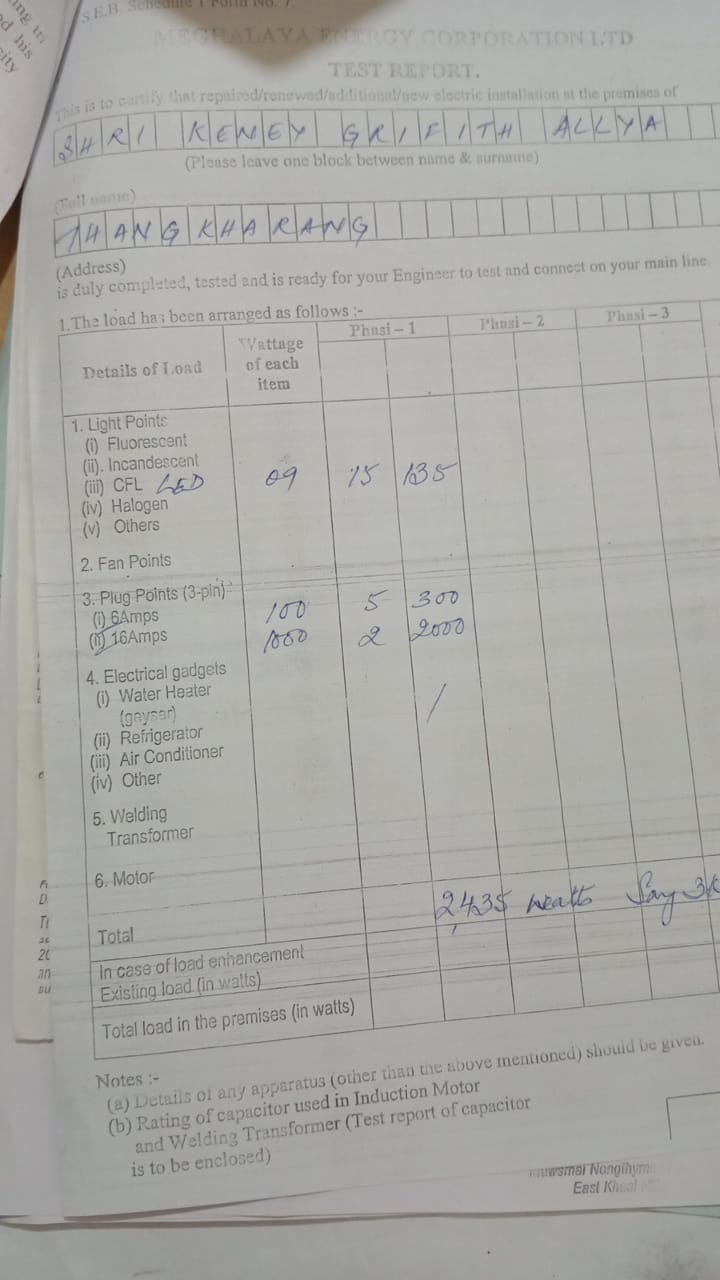 ng to
d his
city
S.E.B. Schedule 1 Form No. 7.
MEGHALAYA ENERGY CORPORATION LTD
TEST REPORT.
This is to certify that repaired/renewed/additional/new electric installation at the premises of
SHRI KENEY GRIFITH ALLYA
(Please leave one block between name & surname)
(Full name)
THANGKHARANG
(Address)
is duly completed, tested and is ready for your Engineer to test and connect on your main line.
1.The load has been arranged as follows :-
Details of Load Wattage of each item Phasi – 1 Phasi – 2 Phasi – 3
1. Light Points
(i) Fluorescent
(ii). Incandescent
(iii) CFL LED 09 15 135
(iv) Halogen
(v) Others
2. Fan Points
3. Plug Points (3-pin)
(i) 6Amps 100 5 300
(ii) 16Amps 1000 2 2000
4. Electrical gadgets
(i) Water Heater
(geyser)
(ii) Refrigerator
(iii) Air Conditioner
(iv) Other
5. Welding
Transformer
6. Motor
Total 2435 watts Say 3k
In case of load enhancement
Existing load (in watts)
Total load in the premises (in watts)
Notes :-
(a) Details of any apparatus (other than the above mentioned) should be given.
(b) Rating of capacitor used in Induction Motor
and Welding Transformer (Test report of capacitor
is to be enclosed)
East